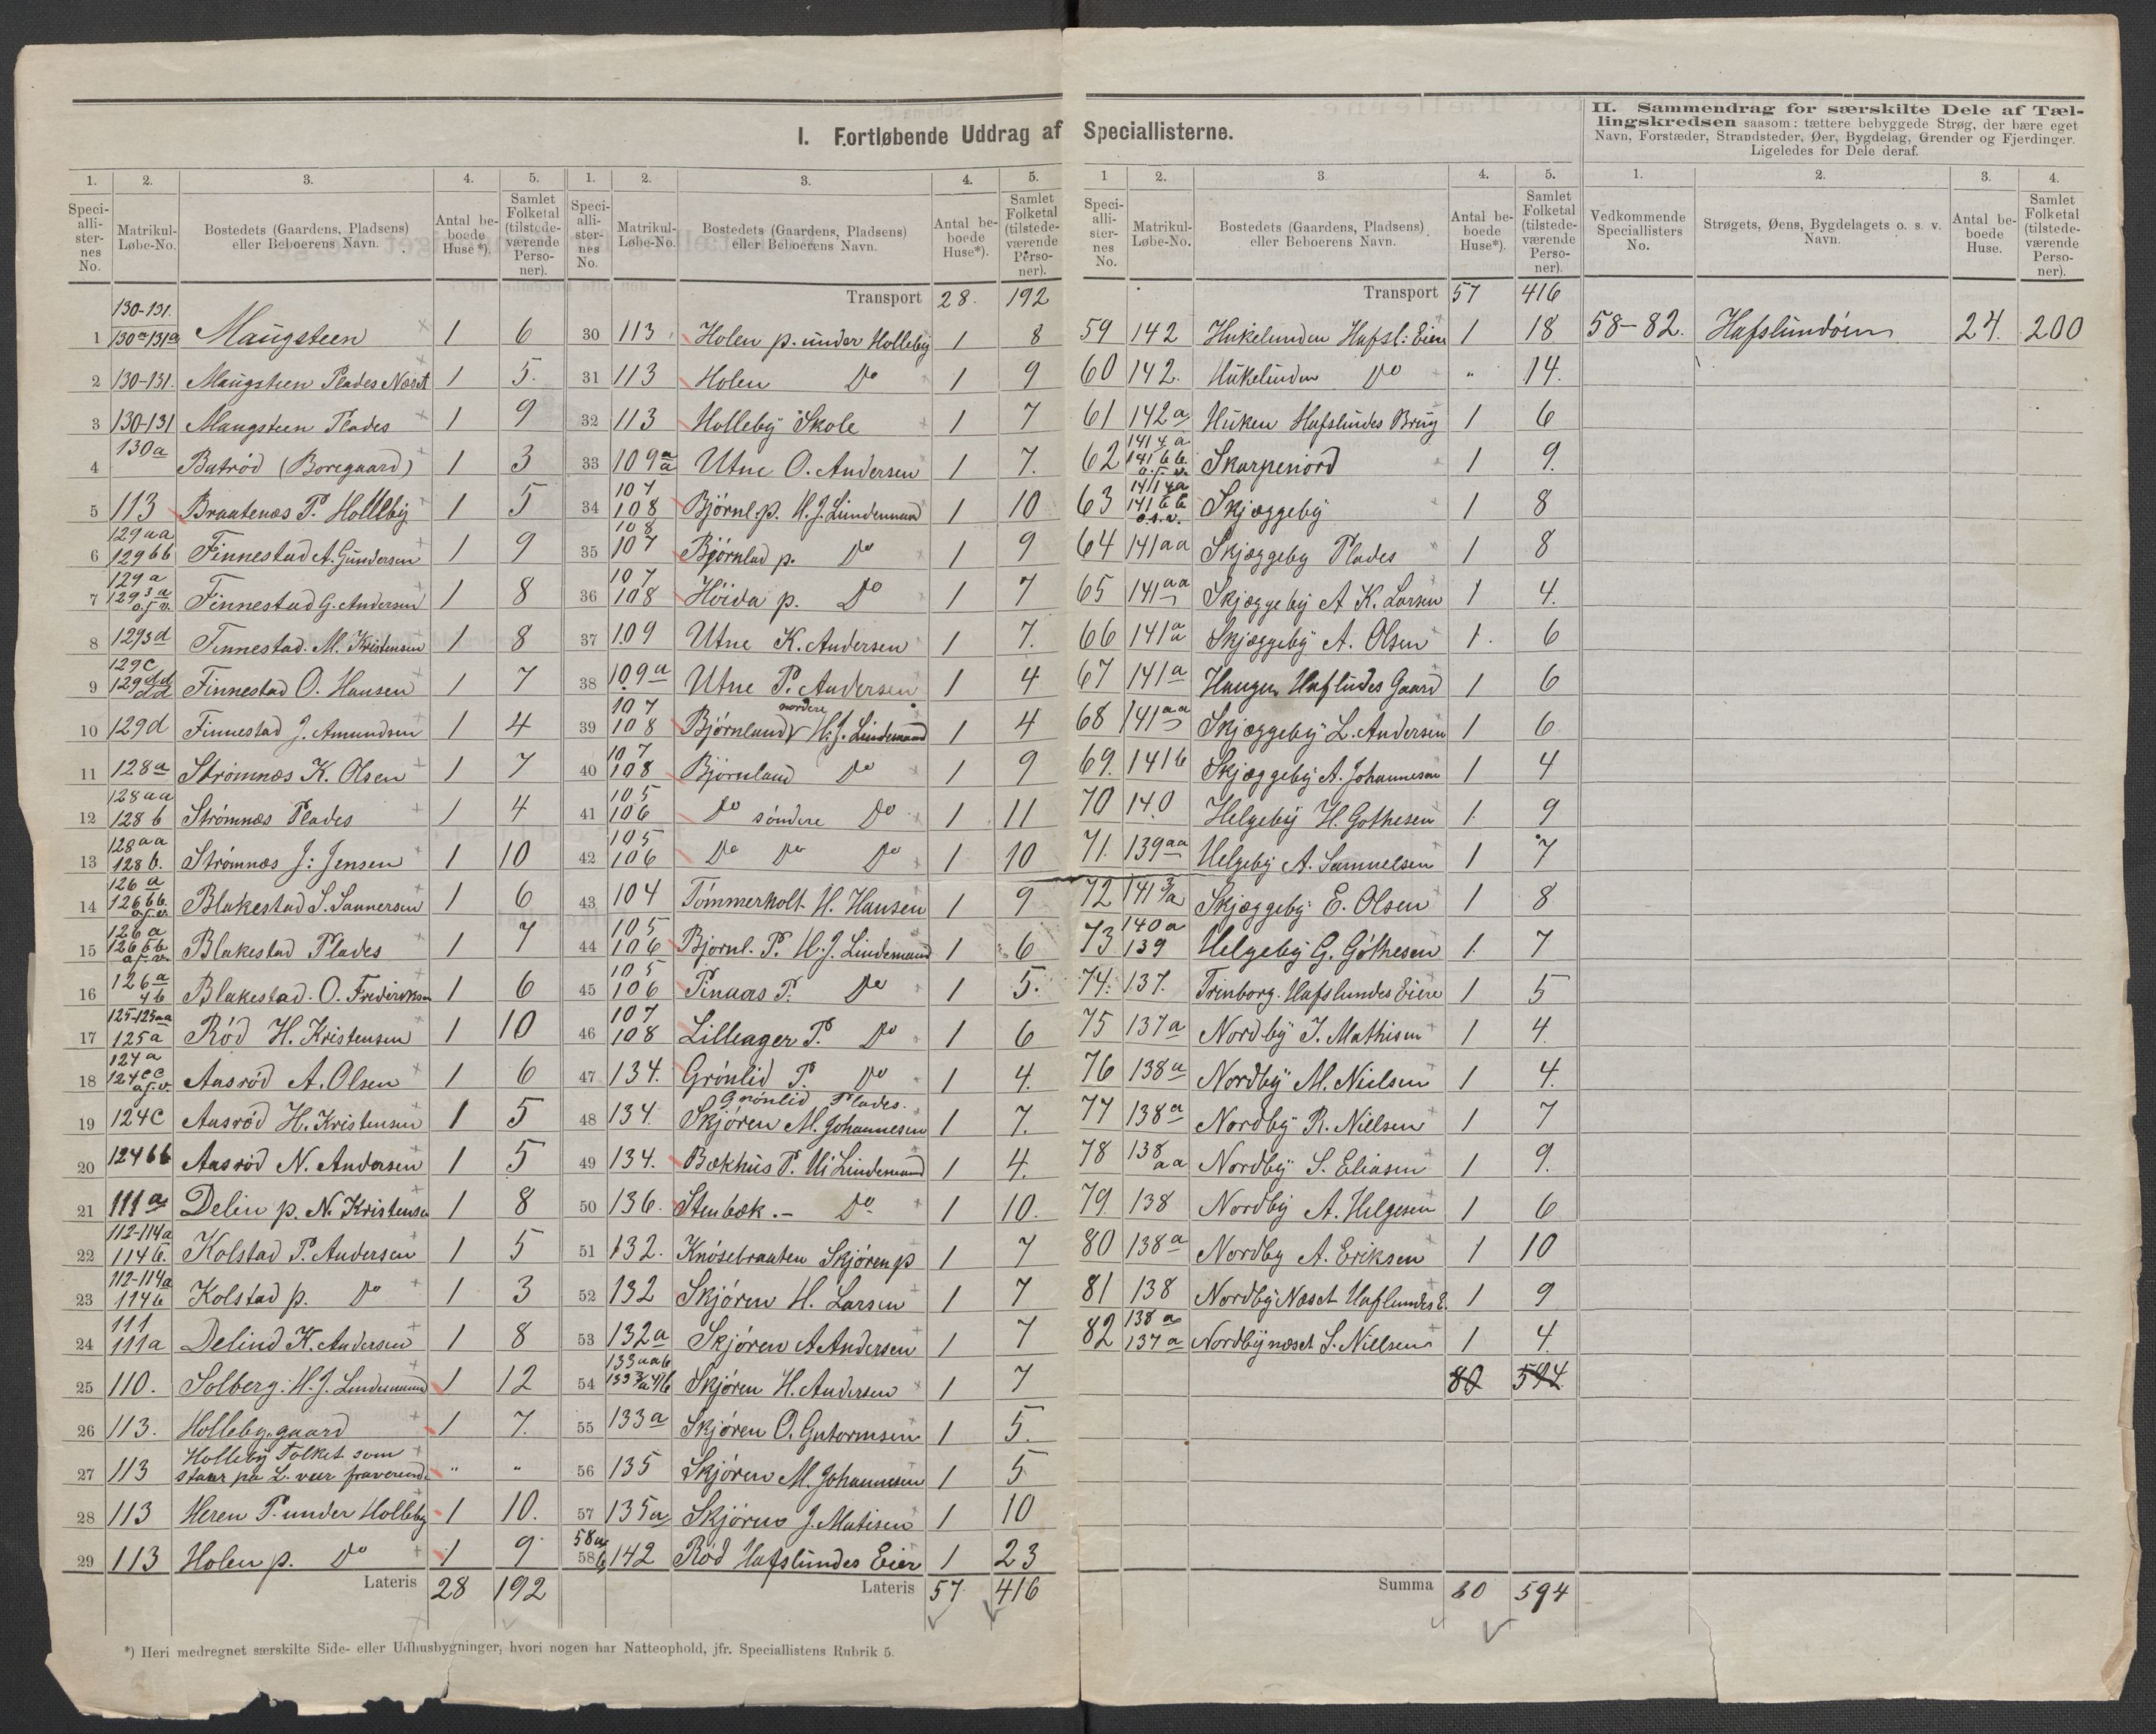 I. Fortløbende Uddrag af Speciallisterne.
II. Sammendrag for særskilte Dele af Tællingskredsen saasom: tættere bebyggede Strøg, der bære eget
Navn, Forstæder, Strandsteder, Øer, Bygdelag, Grender og Fjerdinger.
Ligeledes for Dele deraf.
1. 2. 3. 4. 5.
Speciallisternes No. Matrikul-Løbe-No. Bostedets (Gaardens, Pladsens) eller Beboerens Navn. Antal beboede Huse*). Samlet Folketal (tilstedeværende Personer).
130-131.
1 130a-131a Maugsteen 1 6
2 130-131. Maugsteen Plades Næset 1 5.
3 130-131 Maugsteen Plades 1 9
4 130a Batrød (Boregaard) 1 3
5 113 Braatenæs P. Holleby 1 5
6 129aa 129bb Finnestad A. Gundersen 1 9
7 129a 129 3a o.s.v. Finnestad G. Andersen 1 8
8 129 3d Finnestad. M. Kristensen 1 8
9 129c 129dd Finnestad O. Hansen 1 7
10 129d Finnestad J. Amundsen 1 4
11 128a Strømnæs K. Olsen 1 7
12 128aa 128b Strømnæs Plades 1 4
13 128aa 128b. Strømnæs J: Jensen 1 10
14 126a 126bb. o.s.v. Blakestad S. Sannersen 1 6
15 126a 126bb o.s.v. Blakestad Plades 1 7
16 126a 4b Blakestad. O. Fredriksen 1 6
17 125-125aa 125a Rød H. Kristensen 1 10
18 124a 124cc o.s.v. Aasrød A. Olsen 1 6
19 124c Aasrød H. Kristensen 1 5
20 124bb Aasrød N. Andersen 1 5
21 111a Delin p. N. Kristensen 1 8
22 112-114a 114b. Kolstad P. Andersen 1 5
23 112-114a 114b Kolstad p. Do 1 3
24 111 111a Delind K. Andersen 1 8
25 110. Solberg: H. J. Lindemand 1 12
26 113. Holleby gaard 1 7.
27 113 Holleby Folket som staar på L. veer fraværende " "
28 113 Heren P. under Holleby 1 10.
29 113 Holen p. Do 1 9
Lateris 28 192
*) Heri medregnet særskilte Side- eller Udhusbygninger, hvori nogen har Natteophold, jfr. Speciallistens Rubrik 5.
1. 2. 3. 4. 5.
Speciallisternes No. Matrikul-Løbe-No. Bostedets (Gaardens, Pladsens) eller Beboerens Navn. Antal beboede Huse*). Samlet Folketal (tilstedeværende Personer).
Transport 28. 192
30 113 Holen p. under Holleby 1 8
31 113 Holen Do 1 9
32 113 Holleby Skole 1 7
33 109aa Utne O. Andersen 1 7.
34 107 108 Bjørnl. p. H. J. Lindemand 1 10
35 108 107 Bjørnlad p. Do 1 9
36 107 108 Høida p. Do 1 7
37 109 Utne K. Andersen 1 7.
38 109a Utne P. Andersen 1 4
39 107 108 Bjørnland nordere H. J. Lindemand 1 4
40 107 108 Bjørnland Do 1 9
41 105 106 Do søndere Do 1 11
42 105 106 Do Do Do 1 10
43 104 Tømmerholt H. Hansen 1 9
44 105 106 Bjornl. P. H. J. Lindemand 1 6
45 105 106 Pinaas P. Do 1 5.
46 107 108 Lilleager P. Do 1 6
47 134. Grønlid P. Do 1 4.
Grønlid Plades.
48 134. Skjøren M. Johannesen 1 7.
49 134. Bækhus P. Lindemand 1 4.
50 136. Stenbæk.- Do 1 10.
51 132. Knøsebraaten Skjøren p 1 7
52 132 Skjøren H. Larsen 1 7
53 132a Skjøren A Andersen 1 7
54 133aab Skjøren H. Andersen 1 7
55 133a Skjøren O. Gutormsen 1 5.
56 135 Skjøren M. Johannesen 1 5
57 135a Skjøren J. Matisen 1 10
58a 58b 142 Rød Hafslundes Eier 1 23
Lateris 57 416
1 2. 3. 4. 5.
Speciallisternes No. Matrikul-Løbe-No. Bostedets (Gaardens, Pladsens) eller Beboerens Navn. Antal beboede Huse*). Samlet Folketal (tilstedeværende Personer).
Transport 57 416
59 142 Hukelunden Hafsl: Eier 1 18
60 142. Hukelunden Do " 14.
61 142a Huken Hafslundes Brug 1 6
62 141 4a 141 6b. o.s.v. Skarpenord 1 9.
63 141 4a 141 6b o.s.v. Skjæggeby 1 8
64 141aa Skjæggeby Plades 1 8
65 141aa Skjæggeby A K. Larsen 1 4.
66 141aa Skjæggeby A. Olsen 1. 6
67 141a Haugen Haflundes Gaard 1 6
68 141aa Skjæggeby L. Andersen 1 6
69. 141b Skjæggeby A. Johannesen 1 4
70 140 Helgeby H. Gothesen 1. 9
71. 139aa Helgeby A. Samuelsen 1 7
72 141 3/a Skjæggeby E. Olsen 1 8
73 140a 139 Helgeby G. Gøthesen 1. 7
74. 137. Trinborg. Hafslundes Eiere 1 5
75 137a Nordby J. Mathisen 1 4.
76 138a Nordby M. Nielsen 1 4.
77 138a Nordby R. Nielsen 1 7
78 138aa Nordby S. Eliasen 1 9.
79. 138 Nordby A. Helgesen 1 6
80 138a Nordby A. Eriksen 1 10
81 138 Nordby Næset Haflundes E. 1 9
82 138a 137a Nordbynæset S. Nielsen 1 4.
80 594
Summa 80 594
1. 2. 3. 4.
Vedkommende Speciallisters No. Strøgets, Øens, Bygdelagets o. s. v. Navn. Antal beboede Huse. Samlet Folketal (tilstedeværende Personer).
58-82. Hafslundøen 24. 200